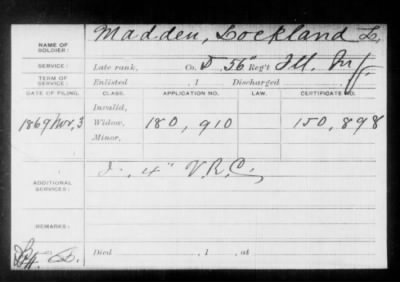 NAME OF SOLDIER: Madden, Lockland L.
SERVICE: Late rank, Co. D 56" Reg't Ill. Inf.
TERM OF SERVICE: Enlisted , 1 Discharged
DATE OF FILING. CLASS. APPLICATION NO. LAW. CERTIFICATE NO.
Invalid,
1869 Nov, 3 Widow, 180,910 150,898
Minor,
ADDITIONAL SERVICES: 4" V.R.C.
REMARKS:
Died , 1 , at